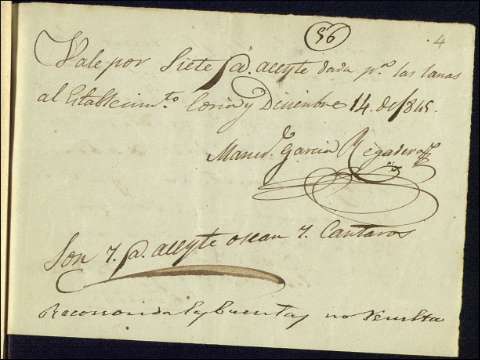 36
4
Vale por Siete @. aceyte dada pa. las lanas
al Establecimto. Coria y Diciembre 14. de 1845.
Manl. de Garcia Regadera
Son 7. @. aceyte o sean 7. Cantaros
Reconocida Cuenta no